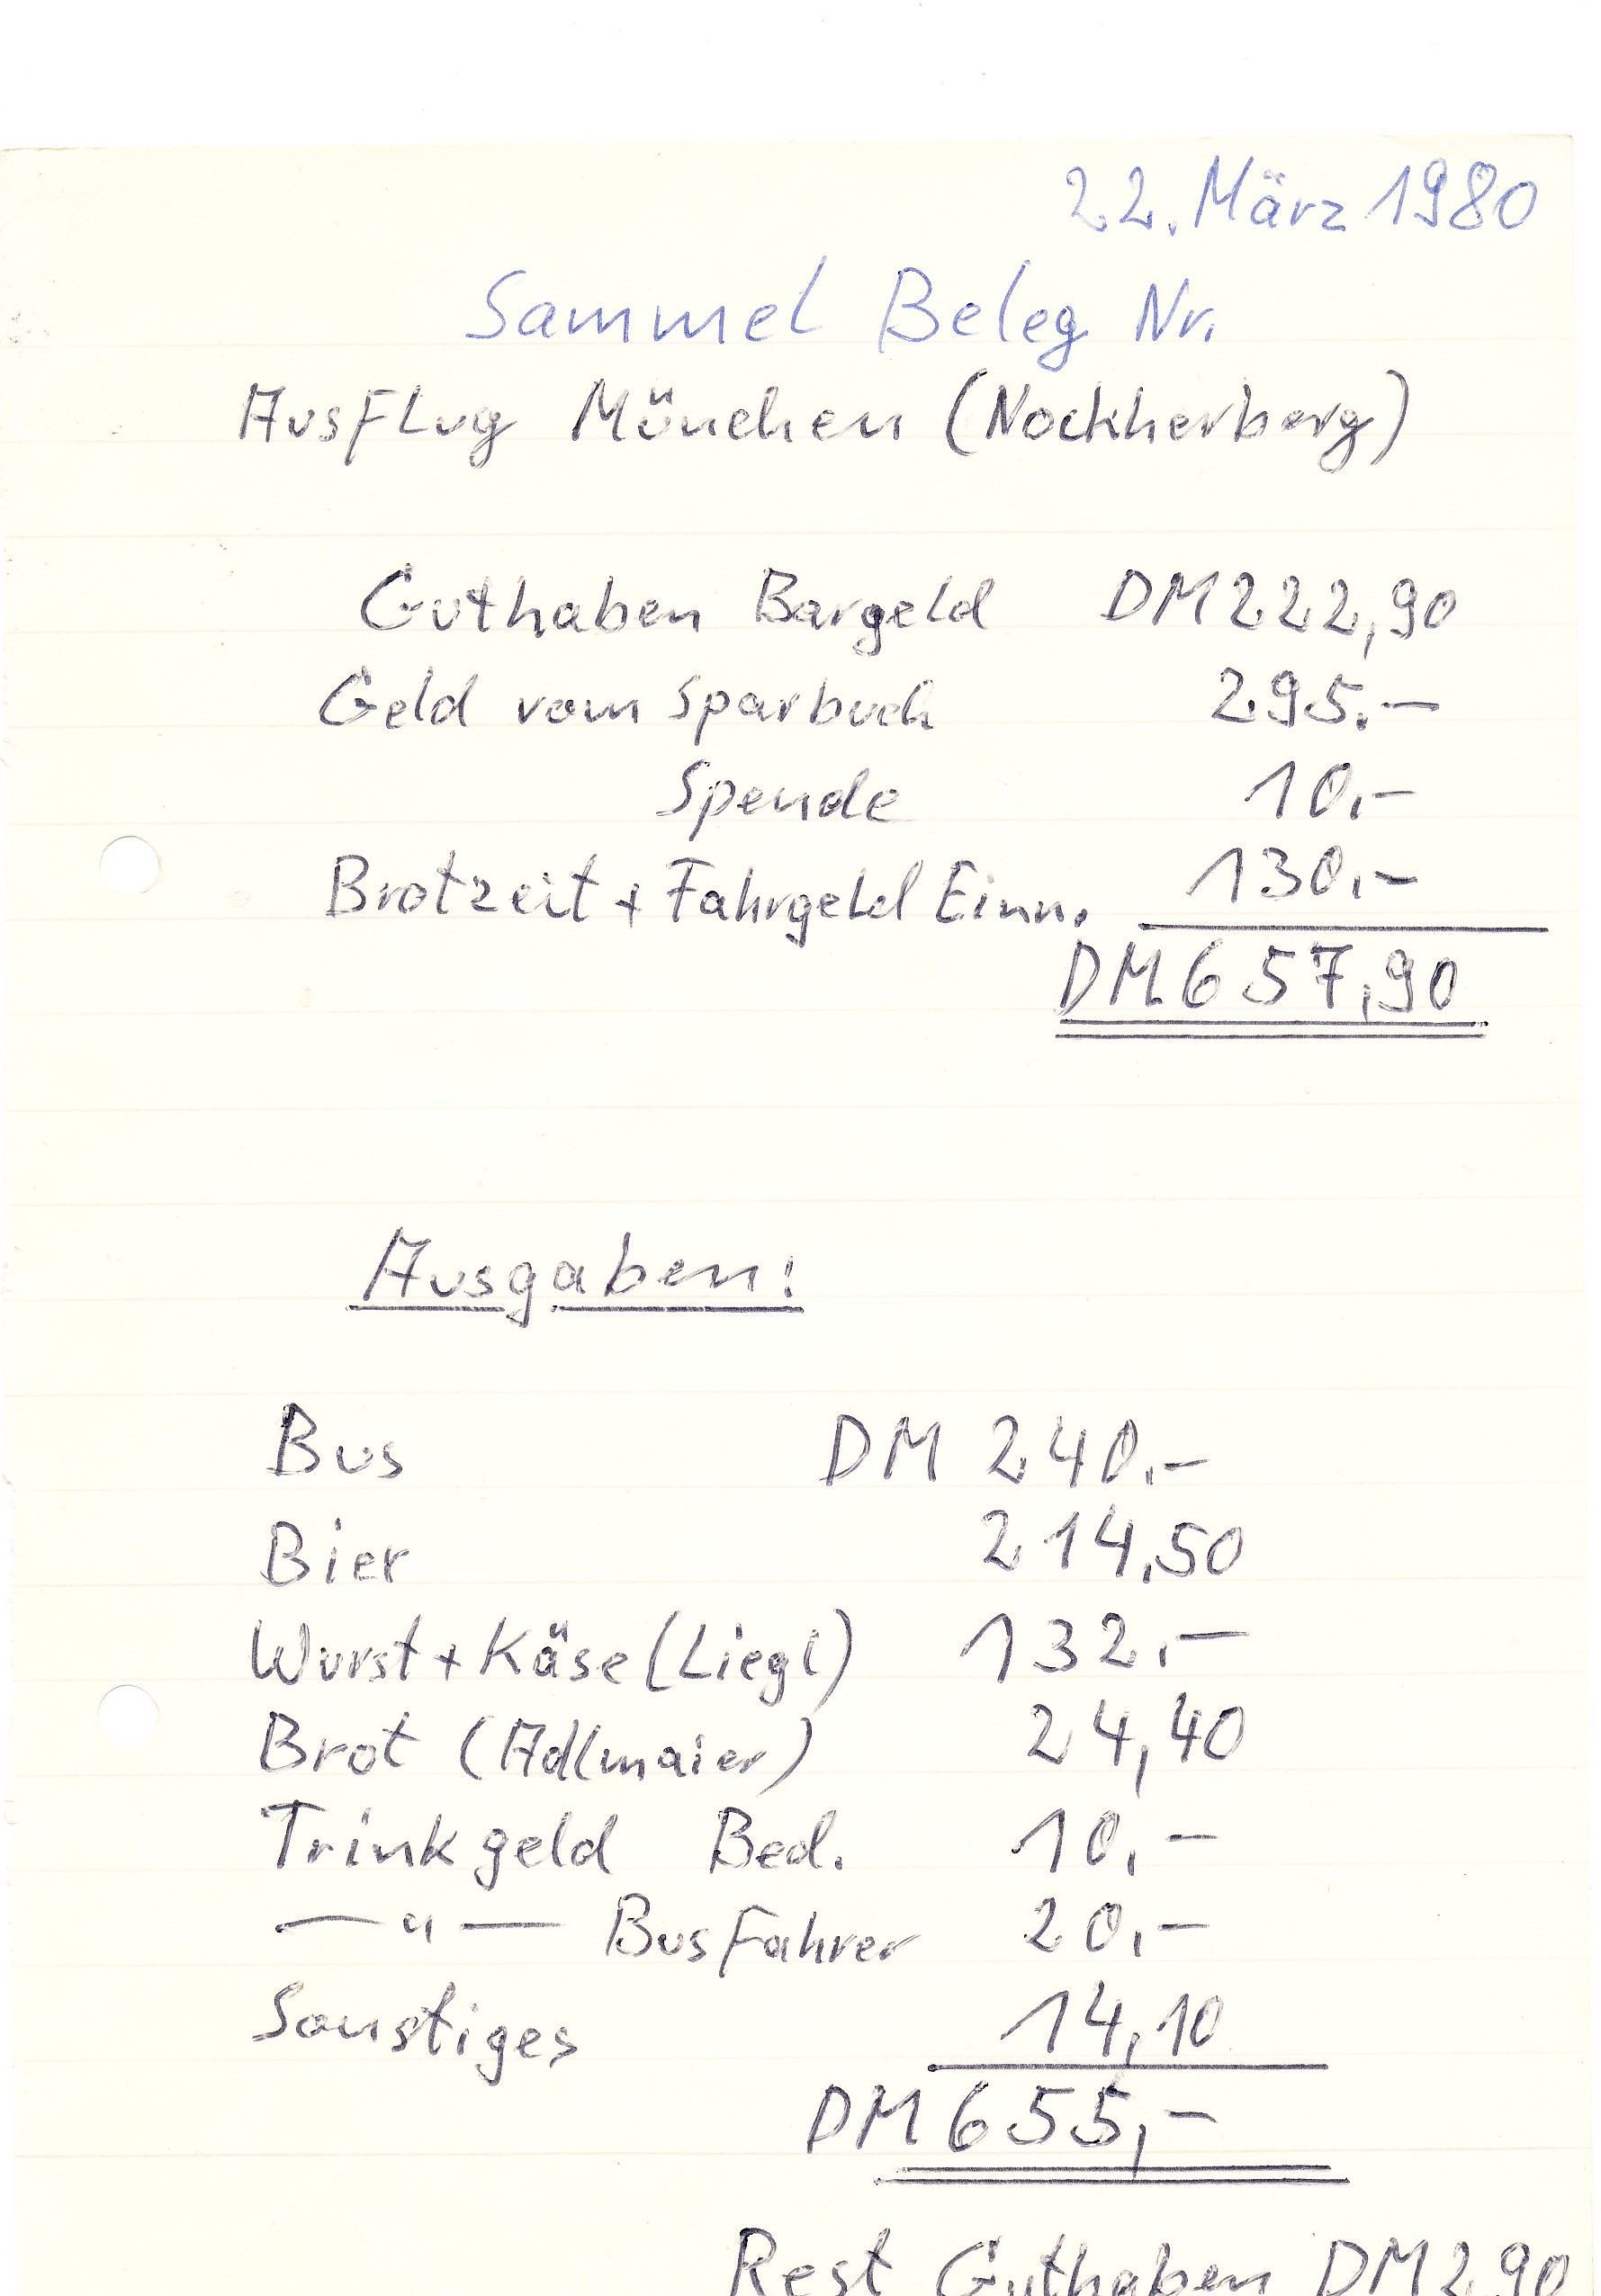 22. März 1980
Sammel Beleg Nr.
Ausflug München (Nockherberg)
Guthaben Bargeld DM 222,90
Geld vom Sparbuch 295.—
Spende 10,—
Brotzeit + Fahrgeld Einn. 130,—
DM 657,90
Ausgaben:
Bus DM 240.—
Bier 214,50
Wurst + Käse (Liegl) 132.—
Brot (Adlmaier) 24,40
Trinkgeld Bed. 10,—
— " — Busfahrer 20,—
Sonstiges 14,10
DM 655,—
Rest Guthaben DM 2,90